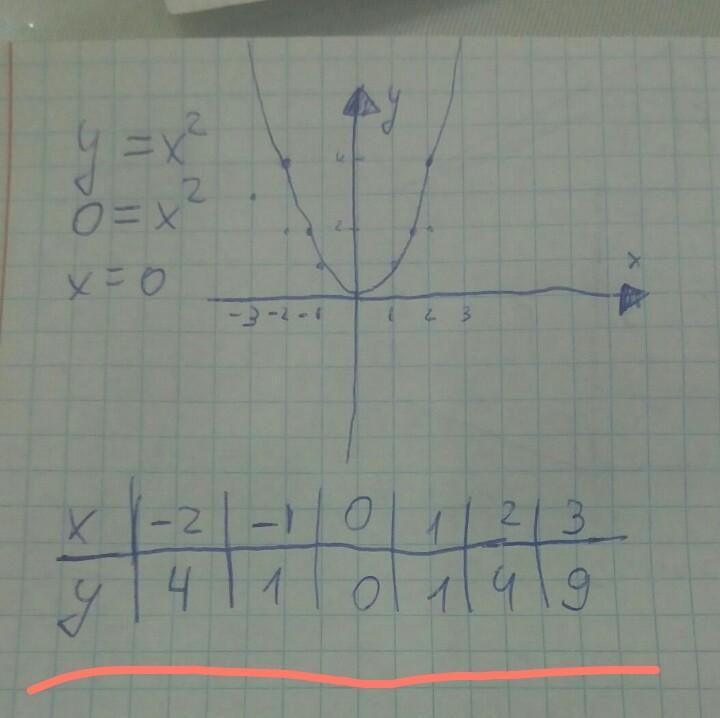 y = x²
0 = x²
x = 0
y
4
2
x
-3 -2 -1 1 2 3
x -2 -1 0 1 2 3
y 4 1 0 1 4 9